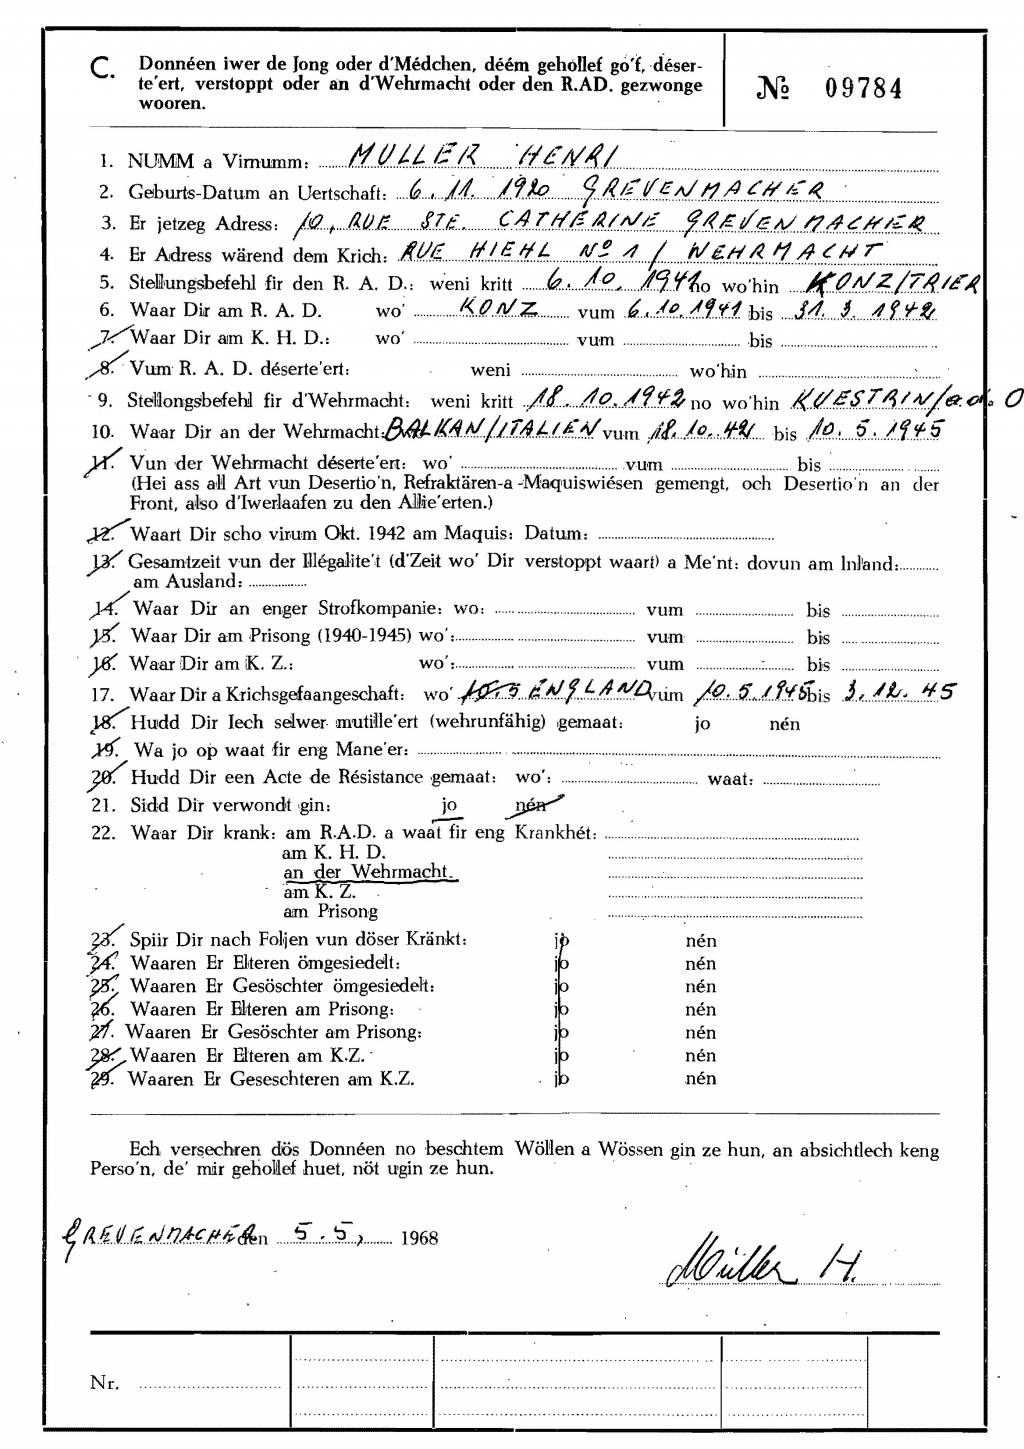 C. Donnéen iwer de Jong oder d'Médchen, déém gehollef go'f, déser-
te'ert, verstoppt oder an d'Wehrmacht oder den R.AD. gezwonge
wooren.
№ 09784
1. NUMM a Virnumm: MULLER HENRI
2. Geburts-Datum an Uertschaft: 6.11.1920 GREVENMACHER
3. Er jetzeg Adress: 10, RUE STE. CATHERINE GREVENMACHER
4. Er Adress wärend dem Krich: RUE HIEHL N° 1 / WEHRMACHT
5. Stellungsbefehl fir den R. A. D.: weni kritt 6.10.1941 no wo'hin KONZ/TRIER
6. Waar Dir am R. A. D. wo' KONZ vum 6.10.1941 bis 31.3.1942
7. Waar Dir am K. H. D.: wo' vum bis
8. Vum R. A. D. déserte'ert: weni wo'hin
9. Stellongsbefehl fir d'Wehrmacht: weni kritt 18.10.1942 no wo'hin KUESTRIN/a.d. O
10. Waar Dir an der Wehrmacht: BALKAN/ITALIEN vum 18.10.42 bis 10.5.1945
11. Vun der Wehrmacht déserte'ert: wo' vum bis
(Hei ass all Art vun Desertio'n, Refraktären-a-Maquiswiésen gemengt, och Desertio'n an der
Front, also d'Iwerlaafen zu den Allie'erten.)
12. Waart Dir scho virum Okt. 1942 am Maquis: Datum:
13. Gesamtzeit vun der Illégalite't (d'Zeit wo' Dir verstoppt waart) a Me'nt: dovun am Inland:
am Ausland:
14. Waar Dir an enger Strofkompanie: wo: vum bis
15. Waar Dir am Prisong (1940-1945) wo': vum bis
16. Waar Dir am K. Z.: wo': vum bis
17. Waar Dir a Krichsgefaangeschaft: wo' 10.5 ENGLAND vum 10.5.1945 bis 3.12.45
18. Hudd Dir Iech selwer mutille'ert (wehrunfähig) gemaat: jo nén
19. Wa jo op waat fir eng Mane'er:
20. Hudd Dir een Acte de Résistance gemaat: wo': waat:
21. Sidd Dir verwondt gin: jo nén
22. Waar Dir krank: am R.A.D. a waat fir eng Krankhét:
am K. H. D.
an der Wehrmacht.
am K. Z.
am Prisong
23. Spiir Dir nach Foljen vun döser Kränkt: jo nén
24. Waaren Er Elteren ömgesiedelt: jo nén
25. Waaren Er Gesöschter ömgesiedelt: jo nén
26. Waaren Er Elteren am Prisong: jo nén
27. Waaren Er Gesöschter am Prisong: jo nén
28. Waaren Er Elteren am K.Z. jo nén
29. Waaren Er Geseschteren am K.Z. jo nén
Ech versechren dös Donnéen no beschtem Wöllen a Wössen gin ze hun, an absichtlech keng
Perso'n, de' mir gehollef huet, nöt ugin ze hun.
GREVENMACHER den 5.5, 1968
Müller H.
Nr.